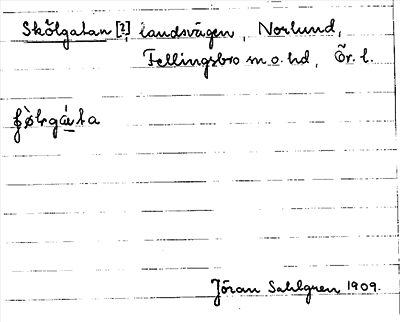 Skölgatan [?], landsvägen, Norlund,
Fellingsbro m.o.hd, Ör. l.
Jöran Sahlgren 1909.